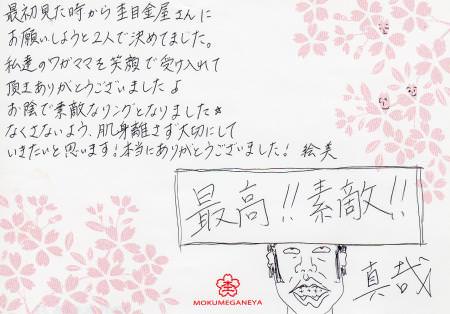 最初見た時から杢目金屋さんに
お願いしようと2人で決めてました。
私達のワガママを笑顔で受け入れて
頂きありがとうございましたよ
お陰で素敵なリングとなりました★
なくさないよう、肌身離さず大切にして
いきたいと思います!本当にありがとうございました! 絵美
最高!!素敵!!
真哉
MOKUMEGANEYA